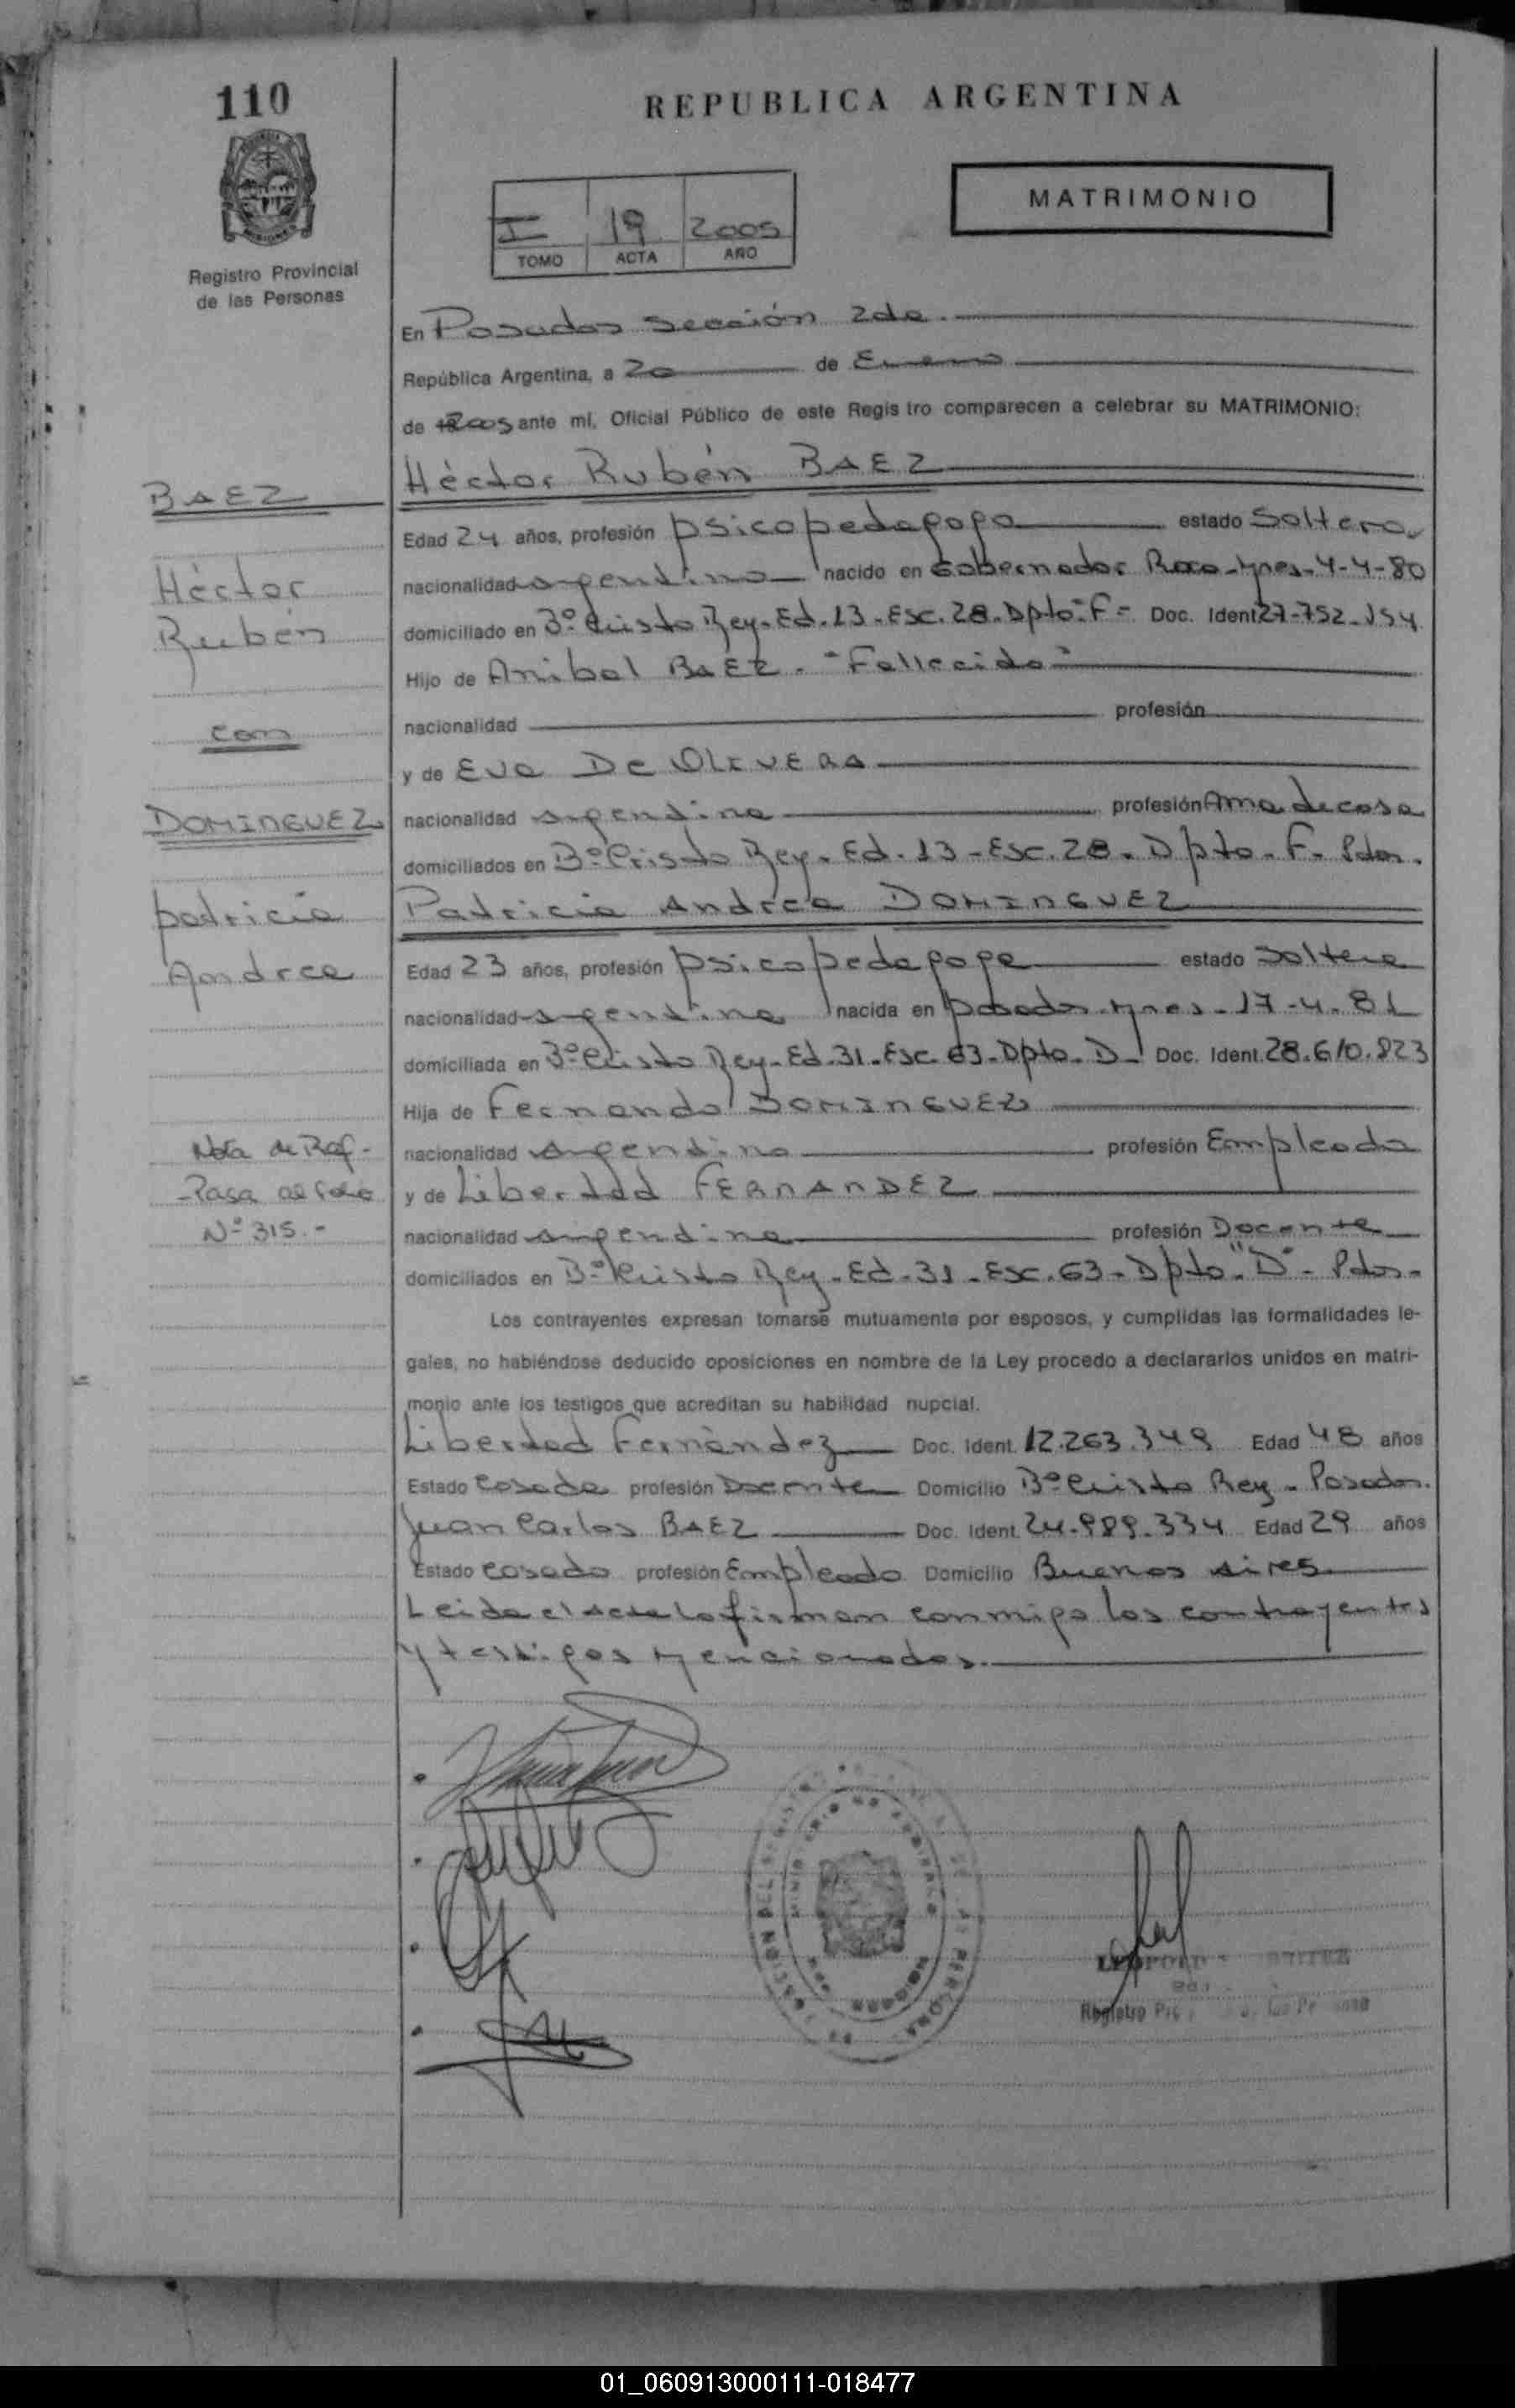 110
REPUBLICA ARGENTINA
MATRIMONIO
I 19 2005
TOMO ACTA AÑO
Registro Provincial
de las Personas
En Posadas Sección 2da.
República Argentina, a 20 de Enero
de 2005 ante mí, Oficial Público de este Registro comparecen a celebrar su MATRIMONIO:
Héctor Rubén BAEZ
BAEZ
Héctor
Rubén
con
DOMINGUEZ
patricia
Andrea
Nota de Ref-
-Pasa al folio
Nº 315.-
Edad 24 años, profesión psicopedagogo estado Soltero
nacionalidad argentino nacido en Gobernador Roca-Mnes-4-4-80
domiciliado en Bº Cristo Rey-Ed.13-Esc.28-Dpto-"F"- Doc. Ident 27-752-154
Hijo de Anibal BAEZ. "Fallecido"
nacionalidad profesión
y de Eva De OLIVERA
nacionalidad argentina profesión Ama de casa
domiciliados en Bº Cristo Rey-Ed.13-Esc.28-Dpto-F-Pdas.
Patricia Andrea DOMINGUEZ
Edad 23 años, profesión psicopedagoga estado Soltera
nacionalidad argentina nacida en posadas-Mnes-17-4-81
domiciliada en Bº Cristo Rey-Ed.31-Esc-63-Dpto-D- Doc. Ident. 28.610.823
Hija de Fernando DOMINGUEZ
nacionalidad argentino profesión Empleado
y de Libertad FERNANDEZ
nacionalidad argentina profesión Docente
domiciliados en Bº Cristo Rey-Ed-31-Esc.63-Dpto-"D"-Pdas-
Los contrayentes expresan tomarse mutuamente por esposos, y cumplidas las formalidades le-
gales, no habiéndose deducido oposiciones en nombre de la Ley procedo a declararlos unidos en matri-
monio ante los testigos que acreditan su habilidad nupcial.
Libertad Fernàndez Doc. Ident. 12.263.349 Edad 48 años
Estado Casada profesión Docente Domicilio Bº Cristo Rey-Posadas.
Juan Carlos BAEZ Doc. Ident. 24-989-334 Edad 29 años
Estado Casado profesión Empleado Domicilio Buenos Aires
Leida el acta la firman conmigo los contrayentes
y testigos mencionados.
Registro
01_060913000111-018477